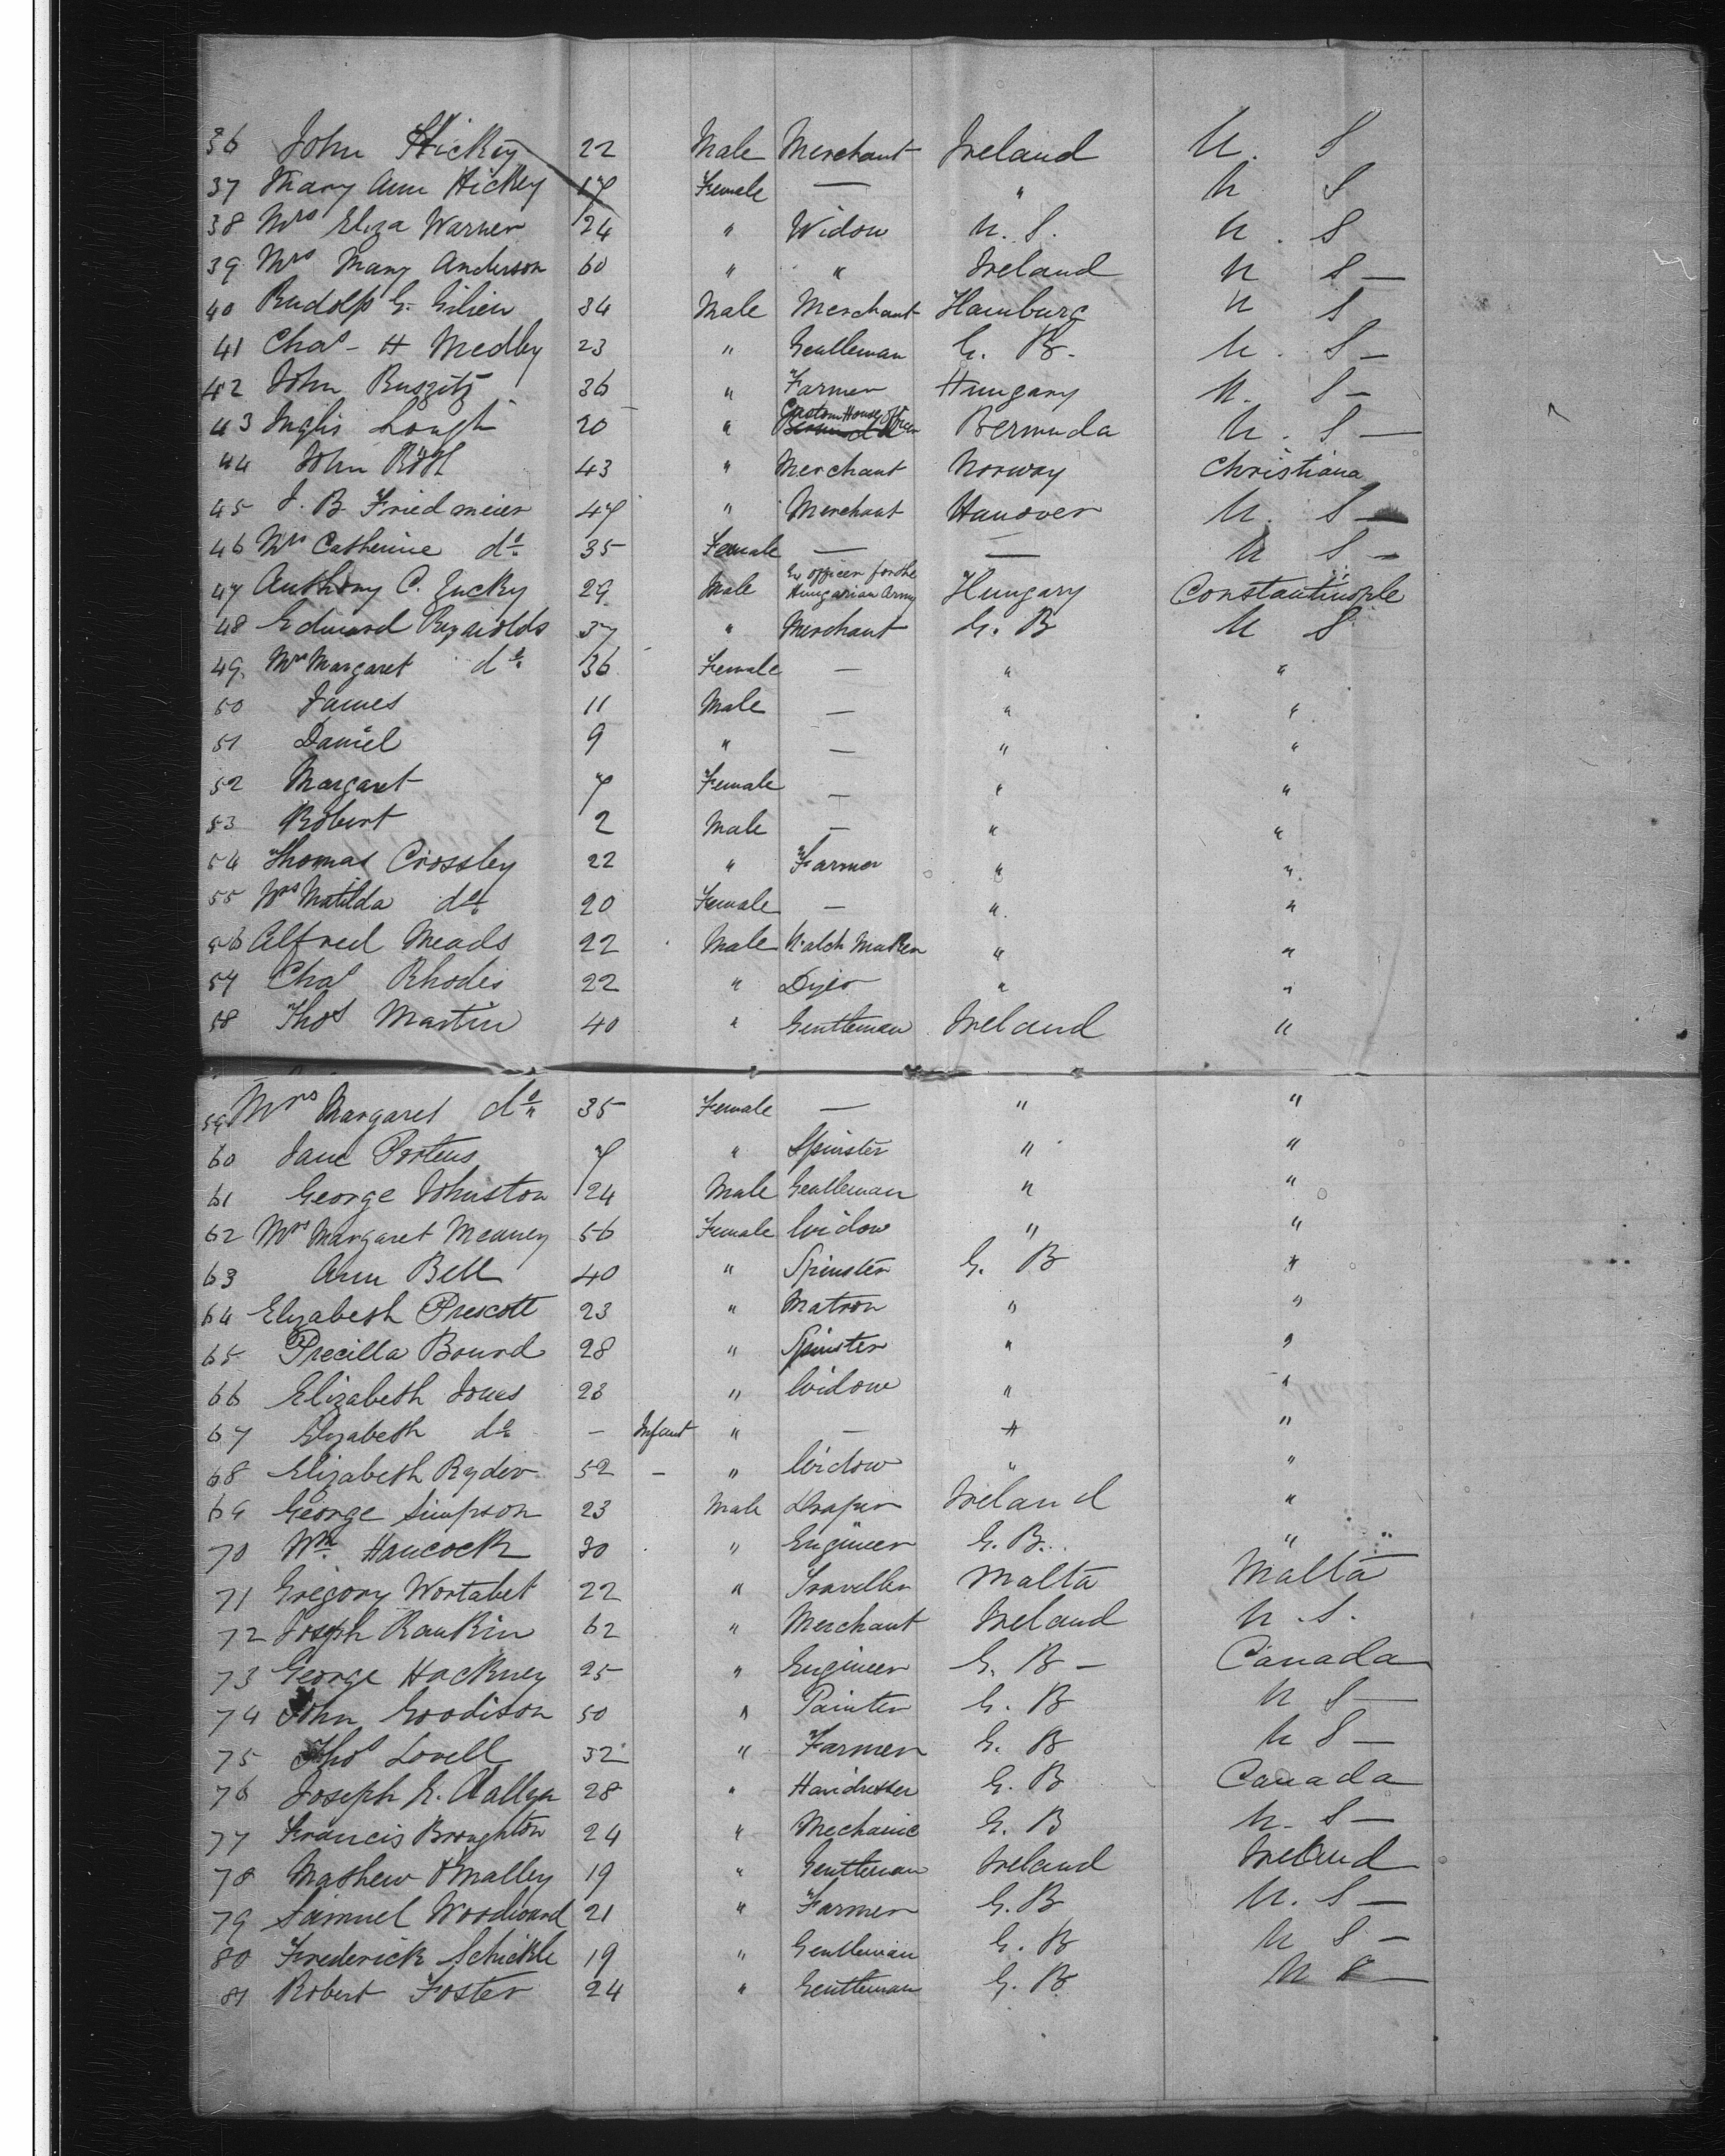 36 John Hickey 22 Male Merchant Ireland U. S
37 Mary Ann Hickey 17 Female — " U S
38 Mrs Eliza Warner 24 " Widow U. S. U. S
39 Mrs Mary Anderson 60 " " Ireland U S —
40 Rudolf G. Gilien 34 Male Merchant Hamburg U S
41 Chas - H Medley 23 " Gentleman G. B. U. S —
42 John Ruszitz 36 " Farmer Hungary U. S —
43 Inglis Lough 20 " Custom House officer Bermuda U. S —
44 John 43 " Merchant Norway Christiana
45 J. B. Friedmeier 47 " Merchant Hanover U. S —
46 Mrs Catherine do 35 Female — — U S —
47 Anthony C. Zucky 29 Male Ex officer for the Hungarian Army Hungary Constantinople
48 Edward Reynolds 37 " Merchant G. B U S
49. Mrs Margaret do 36 Female — " "
50 James 11 Male — " "
51 Daniel 9 " — " "
52 Margaret 7 Female — " "
53 Robert 2 Male — " "
54 Thomas Crossley 22 " Farmer " "
55 Mrs Matilda do 20 Female — " "
56 Alfred Meads 22 Male Watch Maker " "
57 Chas Rhodes 22 " Dyer " "
58 Thos Martin 40 " Gentleman Ireland "
59 Mrs Margaret do 35 Female — " "
60 Jane Porteus 7 " Spinster " "
61 George Johnston 24 Male Gentleman " "
62 Mrs Margaret Meaney 56 Female Widow " "
63 Ann Bell 40 " Spinster G. B "
64 Elizabeth Prescott 23 " Matron " "
65 Precilla Bound 28 " Spinster " "
66 Elizabeth Jones 23 " Widow " "
67 Elizabeth do — Infant " — " "
68 Elizabeth Ryder 52 — " Widow " "
69 George Simpson 23 Male Draper Ireland "
70 Wm Hancock 30 " Engineer G. B. "
71 Gregory Wortabet 22 " Traveller Malta Malta
72 Joseph Rankin 62 " Merchant Ireland U. S.
73 George Hackney 25 " Engineer G. B — Canada
74 John Goodison 50 " Painter G. B U S —
75 Thos Lovell 32 " Farmer G. B U S —
76 Joseph 28 " Hairdresser G. B Canada
77 Francis Broughton 24 " Mechanic G. B U. S —
78 Mathew OMalley 19 " Gentleman Ireland Ireland
79 Samuel Woodward 21 " Farmer G. B U. S —
80 Frederick Schickle 19 " Gentleman G. B U S —
81 Robert Foster 24 " Gentleman G. B U S —